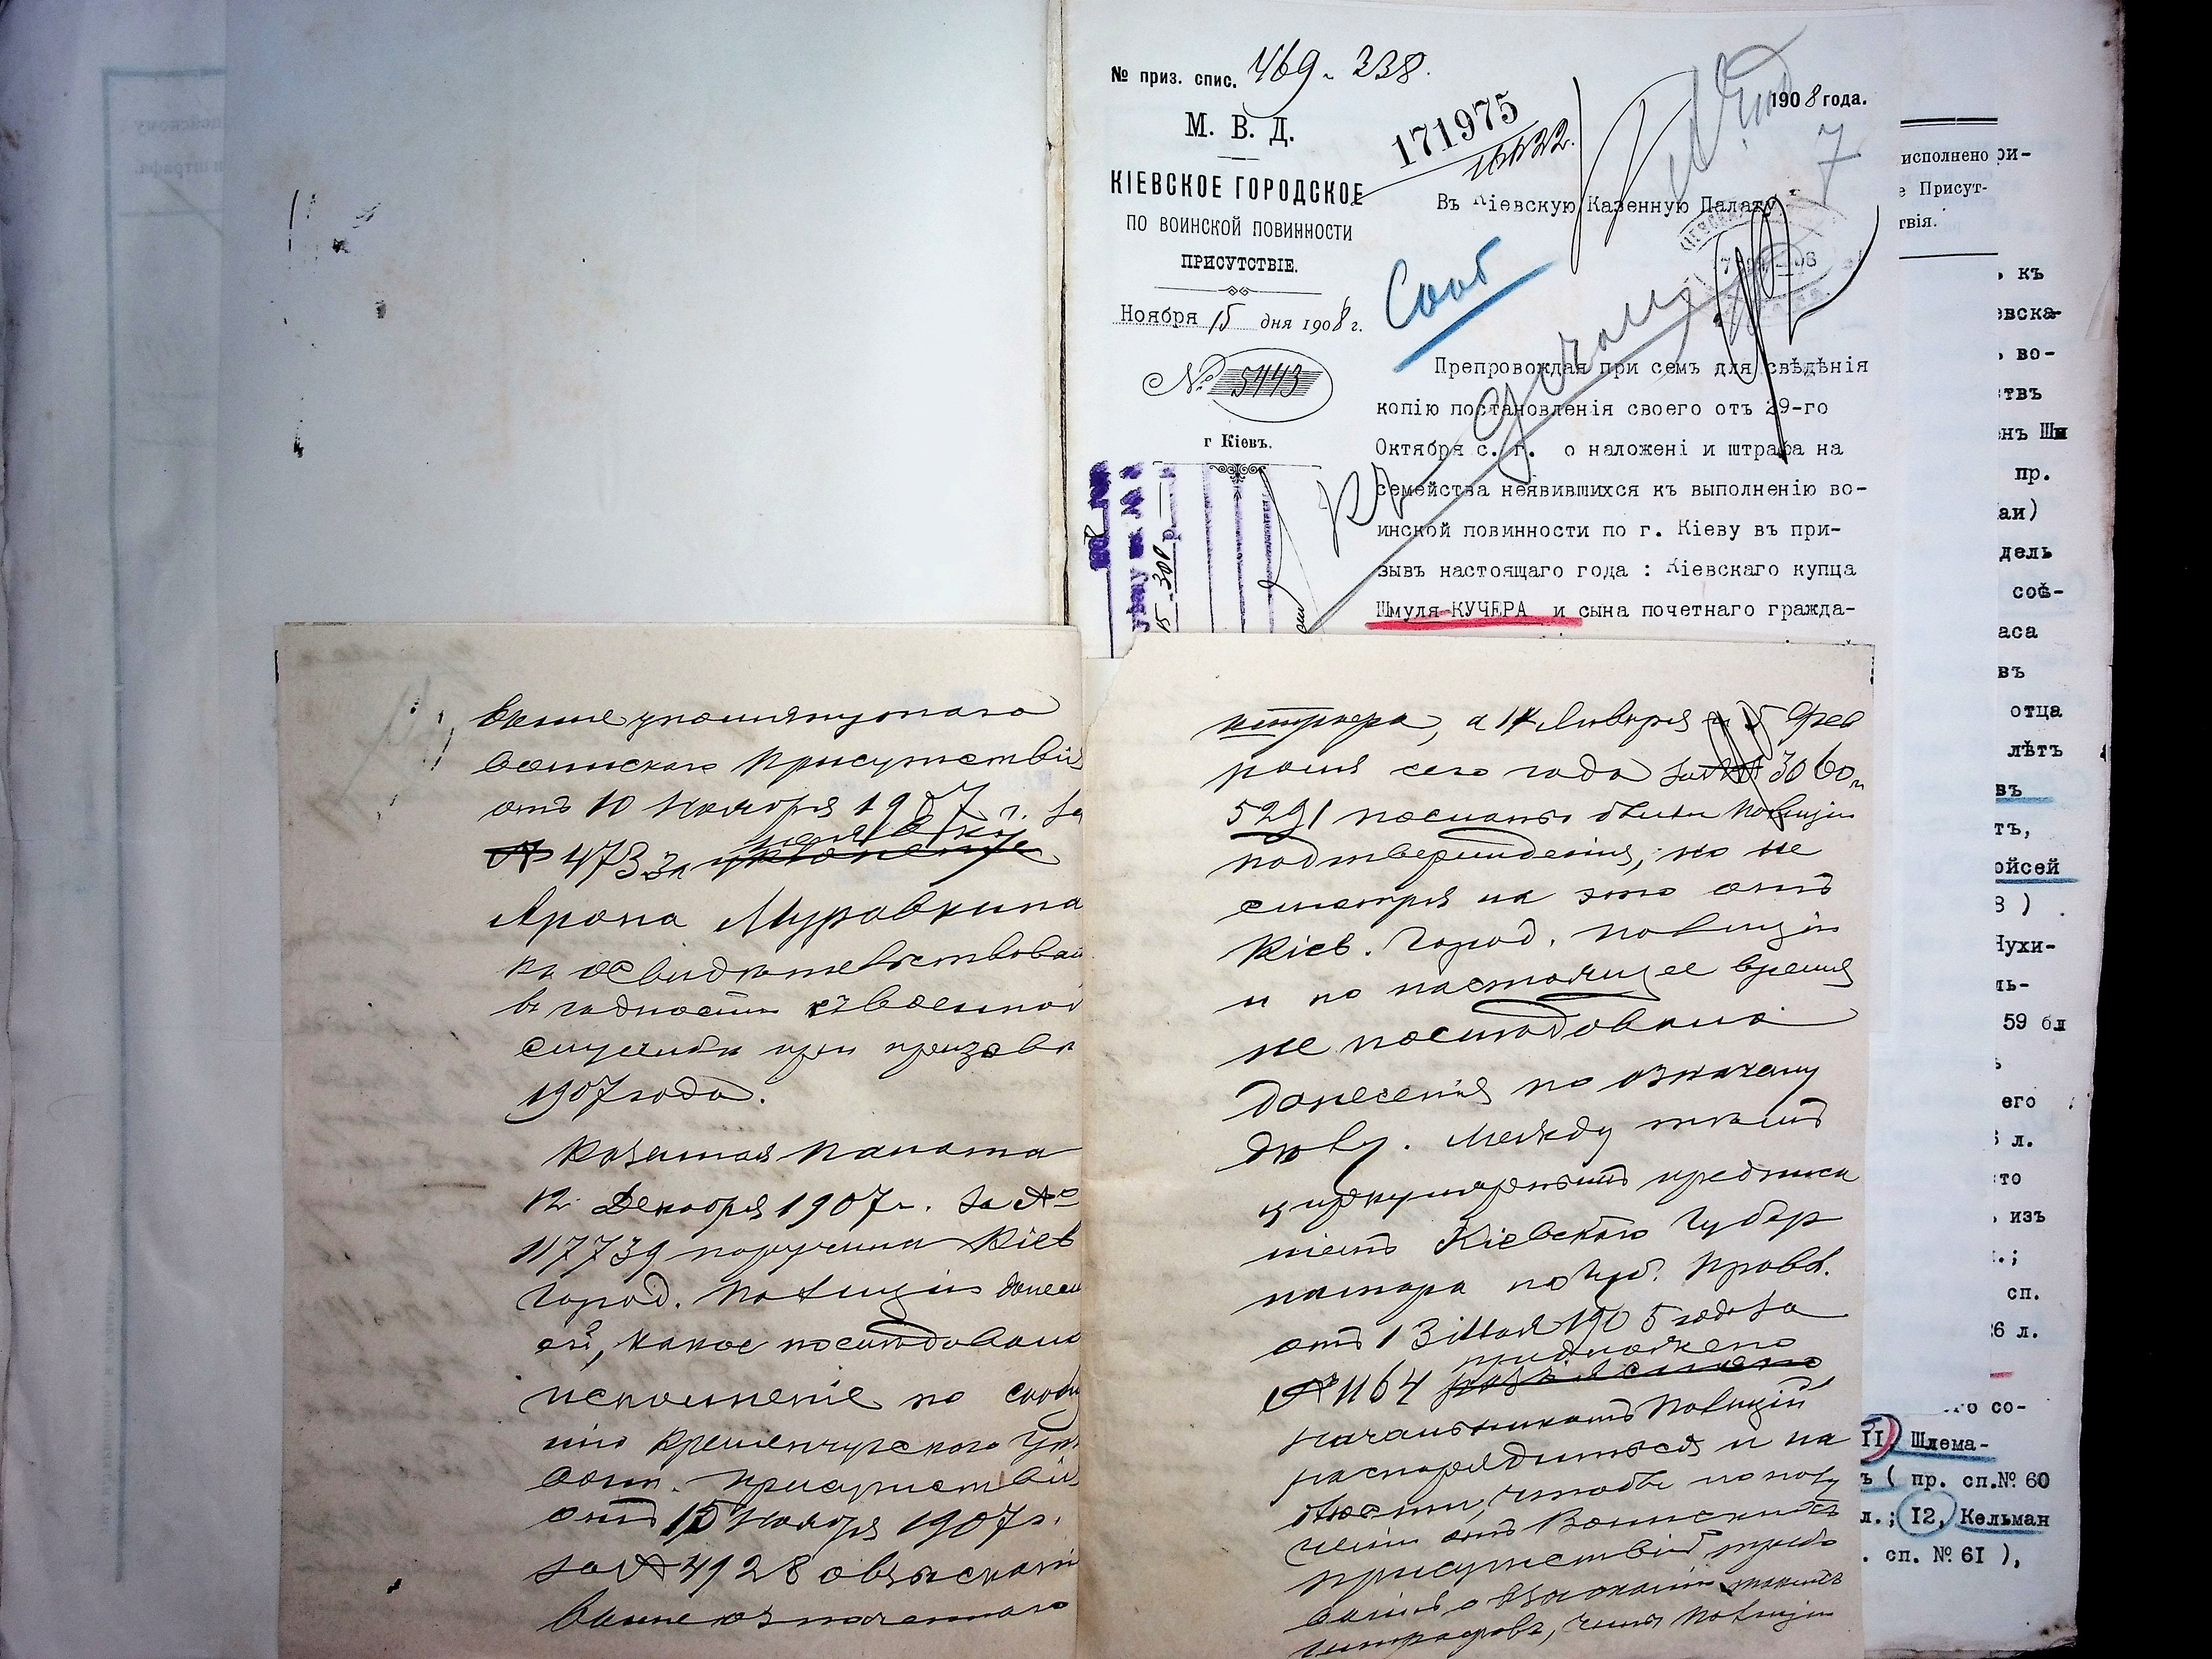 № приз. спис. 469-338.
М. В. Д.
КІЕВСКОЕ ГОРОДСКОЕ
ПО ВОИНСКОЙ ПОВИННОСТИ
ПРИСУТСТВІЕ.
Ноября 15 дня 1908 г.
№ 5443
г Кіевъ.
171975
1908 года.
7
Въ Кіевскую Казенную Палату
Сооб
Препровождая при семъ для свѣдѣнія
копію постановленія своего отъ 29-го
Октября с. г. о наложені и штрафа на
семейства неявившихся къ выполненію во-
инской повинности по г. Кіеву въ при-
зывъ настоящаго года : Кіевскаго купца
Шмуля КУЧЕРА и сына почетнаго гражда-
исполнено
ри-
е Присут-
твія.
ь къ
евска-
ь во-
тствъ
нъ Ши
пр.
аи)
дель
соѣ-
аса
въ
отца
лѣтъ
въ
тъ,
ойсей
8 ) .
Нухи-
ль-
59 бл
его
л.
то
изъ
.;
сп.
6 л.
го со-
II) Шлема-
ъ ( пр. сп.№ 60
л.; I2, Кельман
. сп. № 6I ),
выше упомянутого
воинскаго Присутствія
отъ 10 Ноября 1907 г. за
№ 473 за неявку
Арона Муравкина
къ освидѣтельствован
въ годности къ военной
службѣ при призывѣ
1907 года.
Казенная Палата
12 Декабря 1907 г. за №
117739 поручила Кіев
Город. Полиціи донес
ей, какое послѣдовало
исполненіе по сообщ
нію Кременчугскаго Уѣз
воин. Присутствія
отъ 15 Ноября 1907 г.
за № 4928 о взысканіи
выше означеннаго
штрафа, а 14 Января и 5 Фев
раля сего года за № 3060 и
5291 посланы были Полиціи
подтвержденія, но не
смотря на это отъ
Кіев. Город. Полиціи
и по настоящее время
не послѣдовало
донесенія по означену
дѣлу. Между тѣмъ
циркулярнымъ предписа
ніемъ Кіевскаго Губер
натора по Губ. Правл.
отъ 13 Мая 1905 года за
№ 1164 предложено
начальникамъ Полиціи
распорядиться и на
блюсти, чтобы по полу
ченіи отъ Воинскихъ
Присутствій требо
ваній о взысканіи такихъ
штрафовъ, чины Полиціи